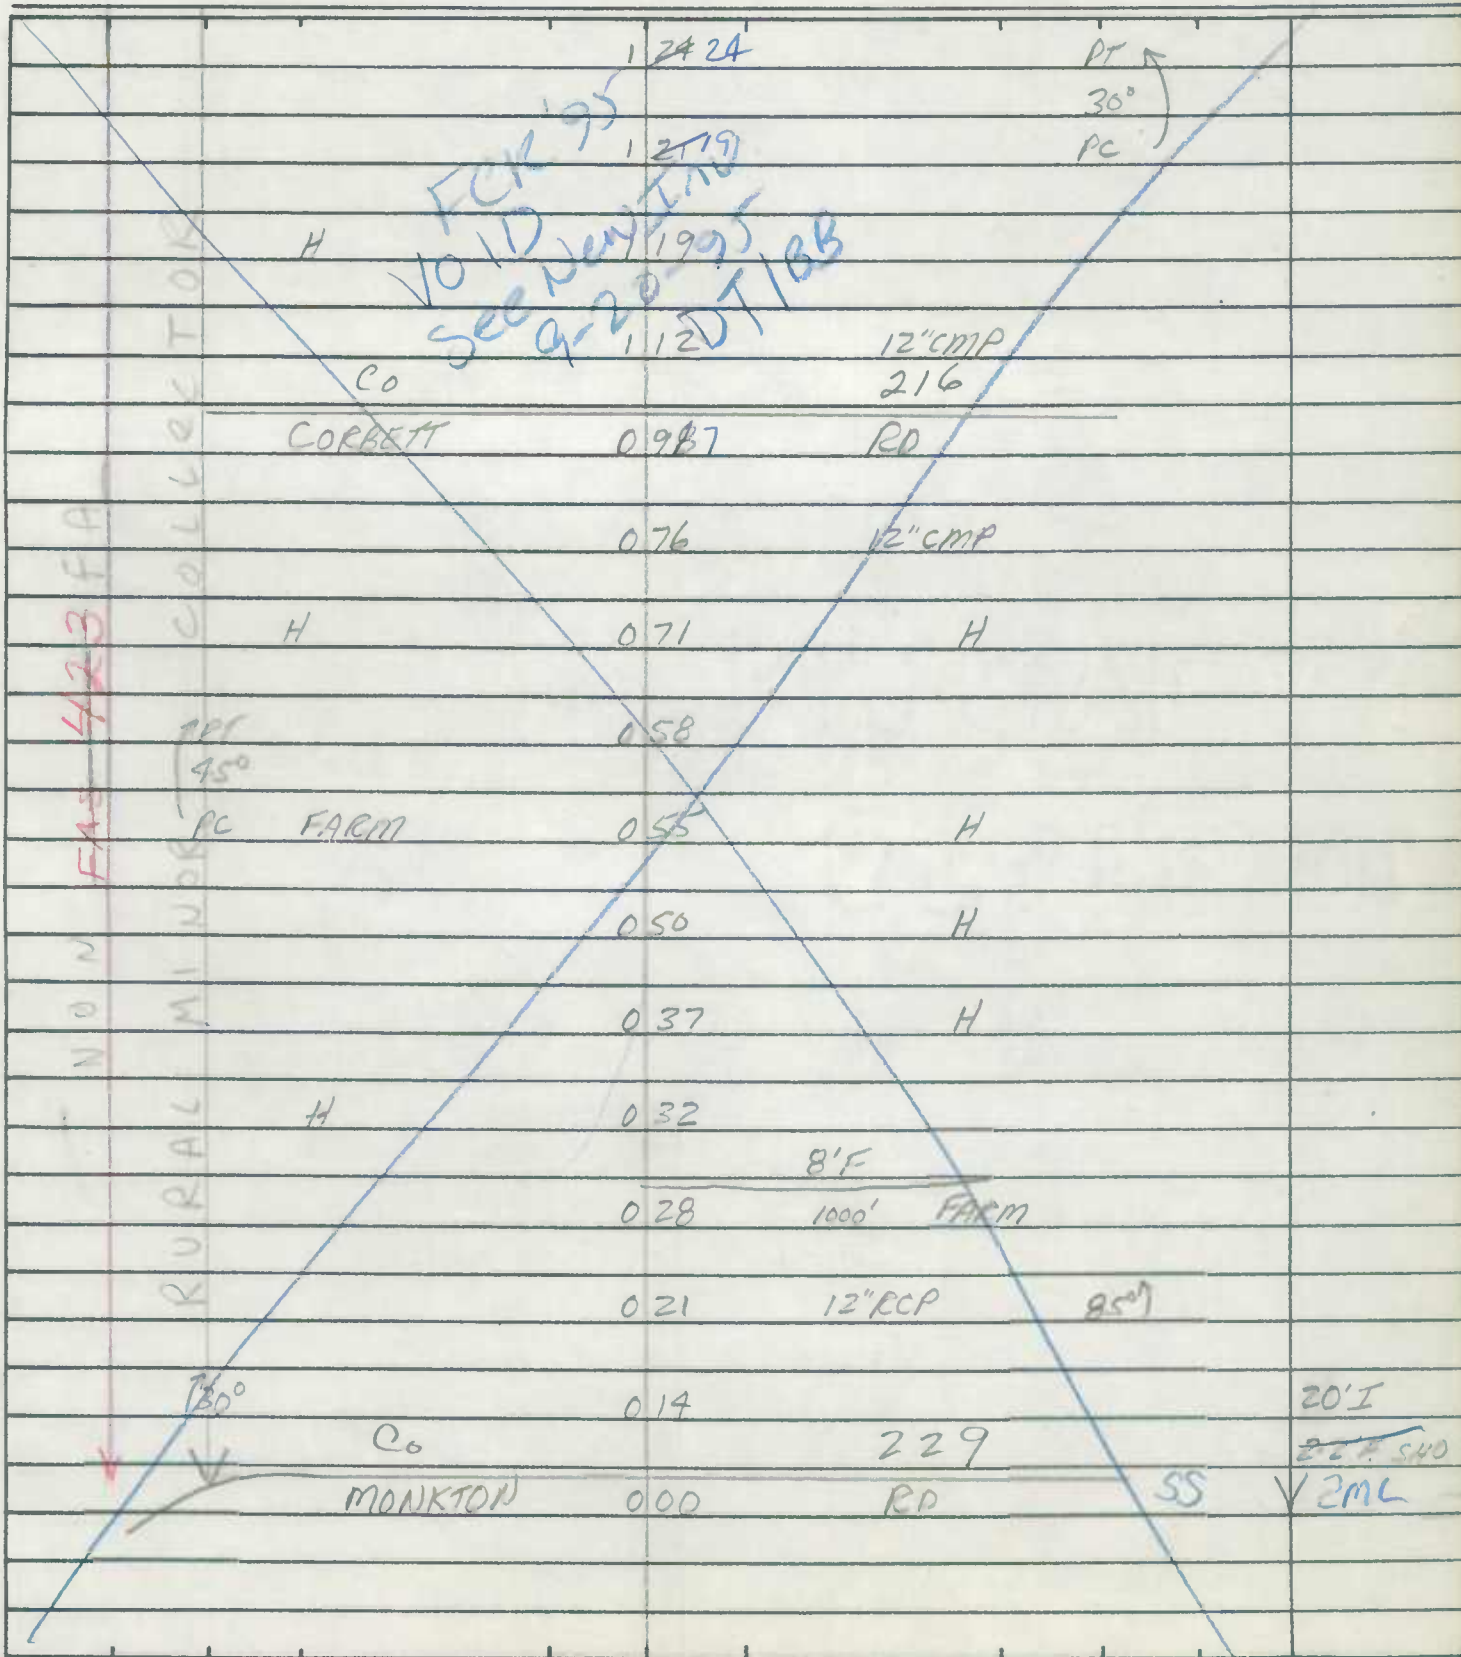 1 24 24 PT
30°
1 21 19 PC
FCK '95
VOID
See New Inv
9-20-95
DT/BB
H 1 19
1 12 12"CMP
Co 216
CORBETT 0 987 RD
0 76 12"CMP
H 0 71 H
PT 0 58
45°
PC FARM 0 55 H
0 50 H
0 37 H
H 0 32
8'F
0 28 1000' FARM
0 21 12"RCP 85°
30° 0 14 20'I
Co 229 SHO
MONKTON 0 00 RD SS 2ML
NON FA
FAS 423
RURAL MINOR COLLECTOR